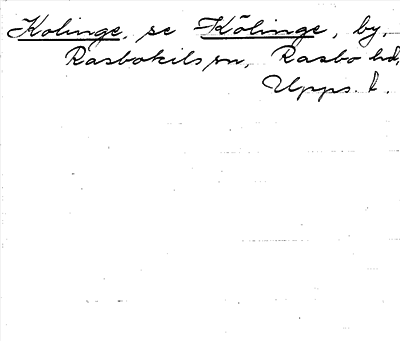 Kolinge, se Kölinge, by,
Rasbokils sn, Rasbo hd,
Upps. l.